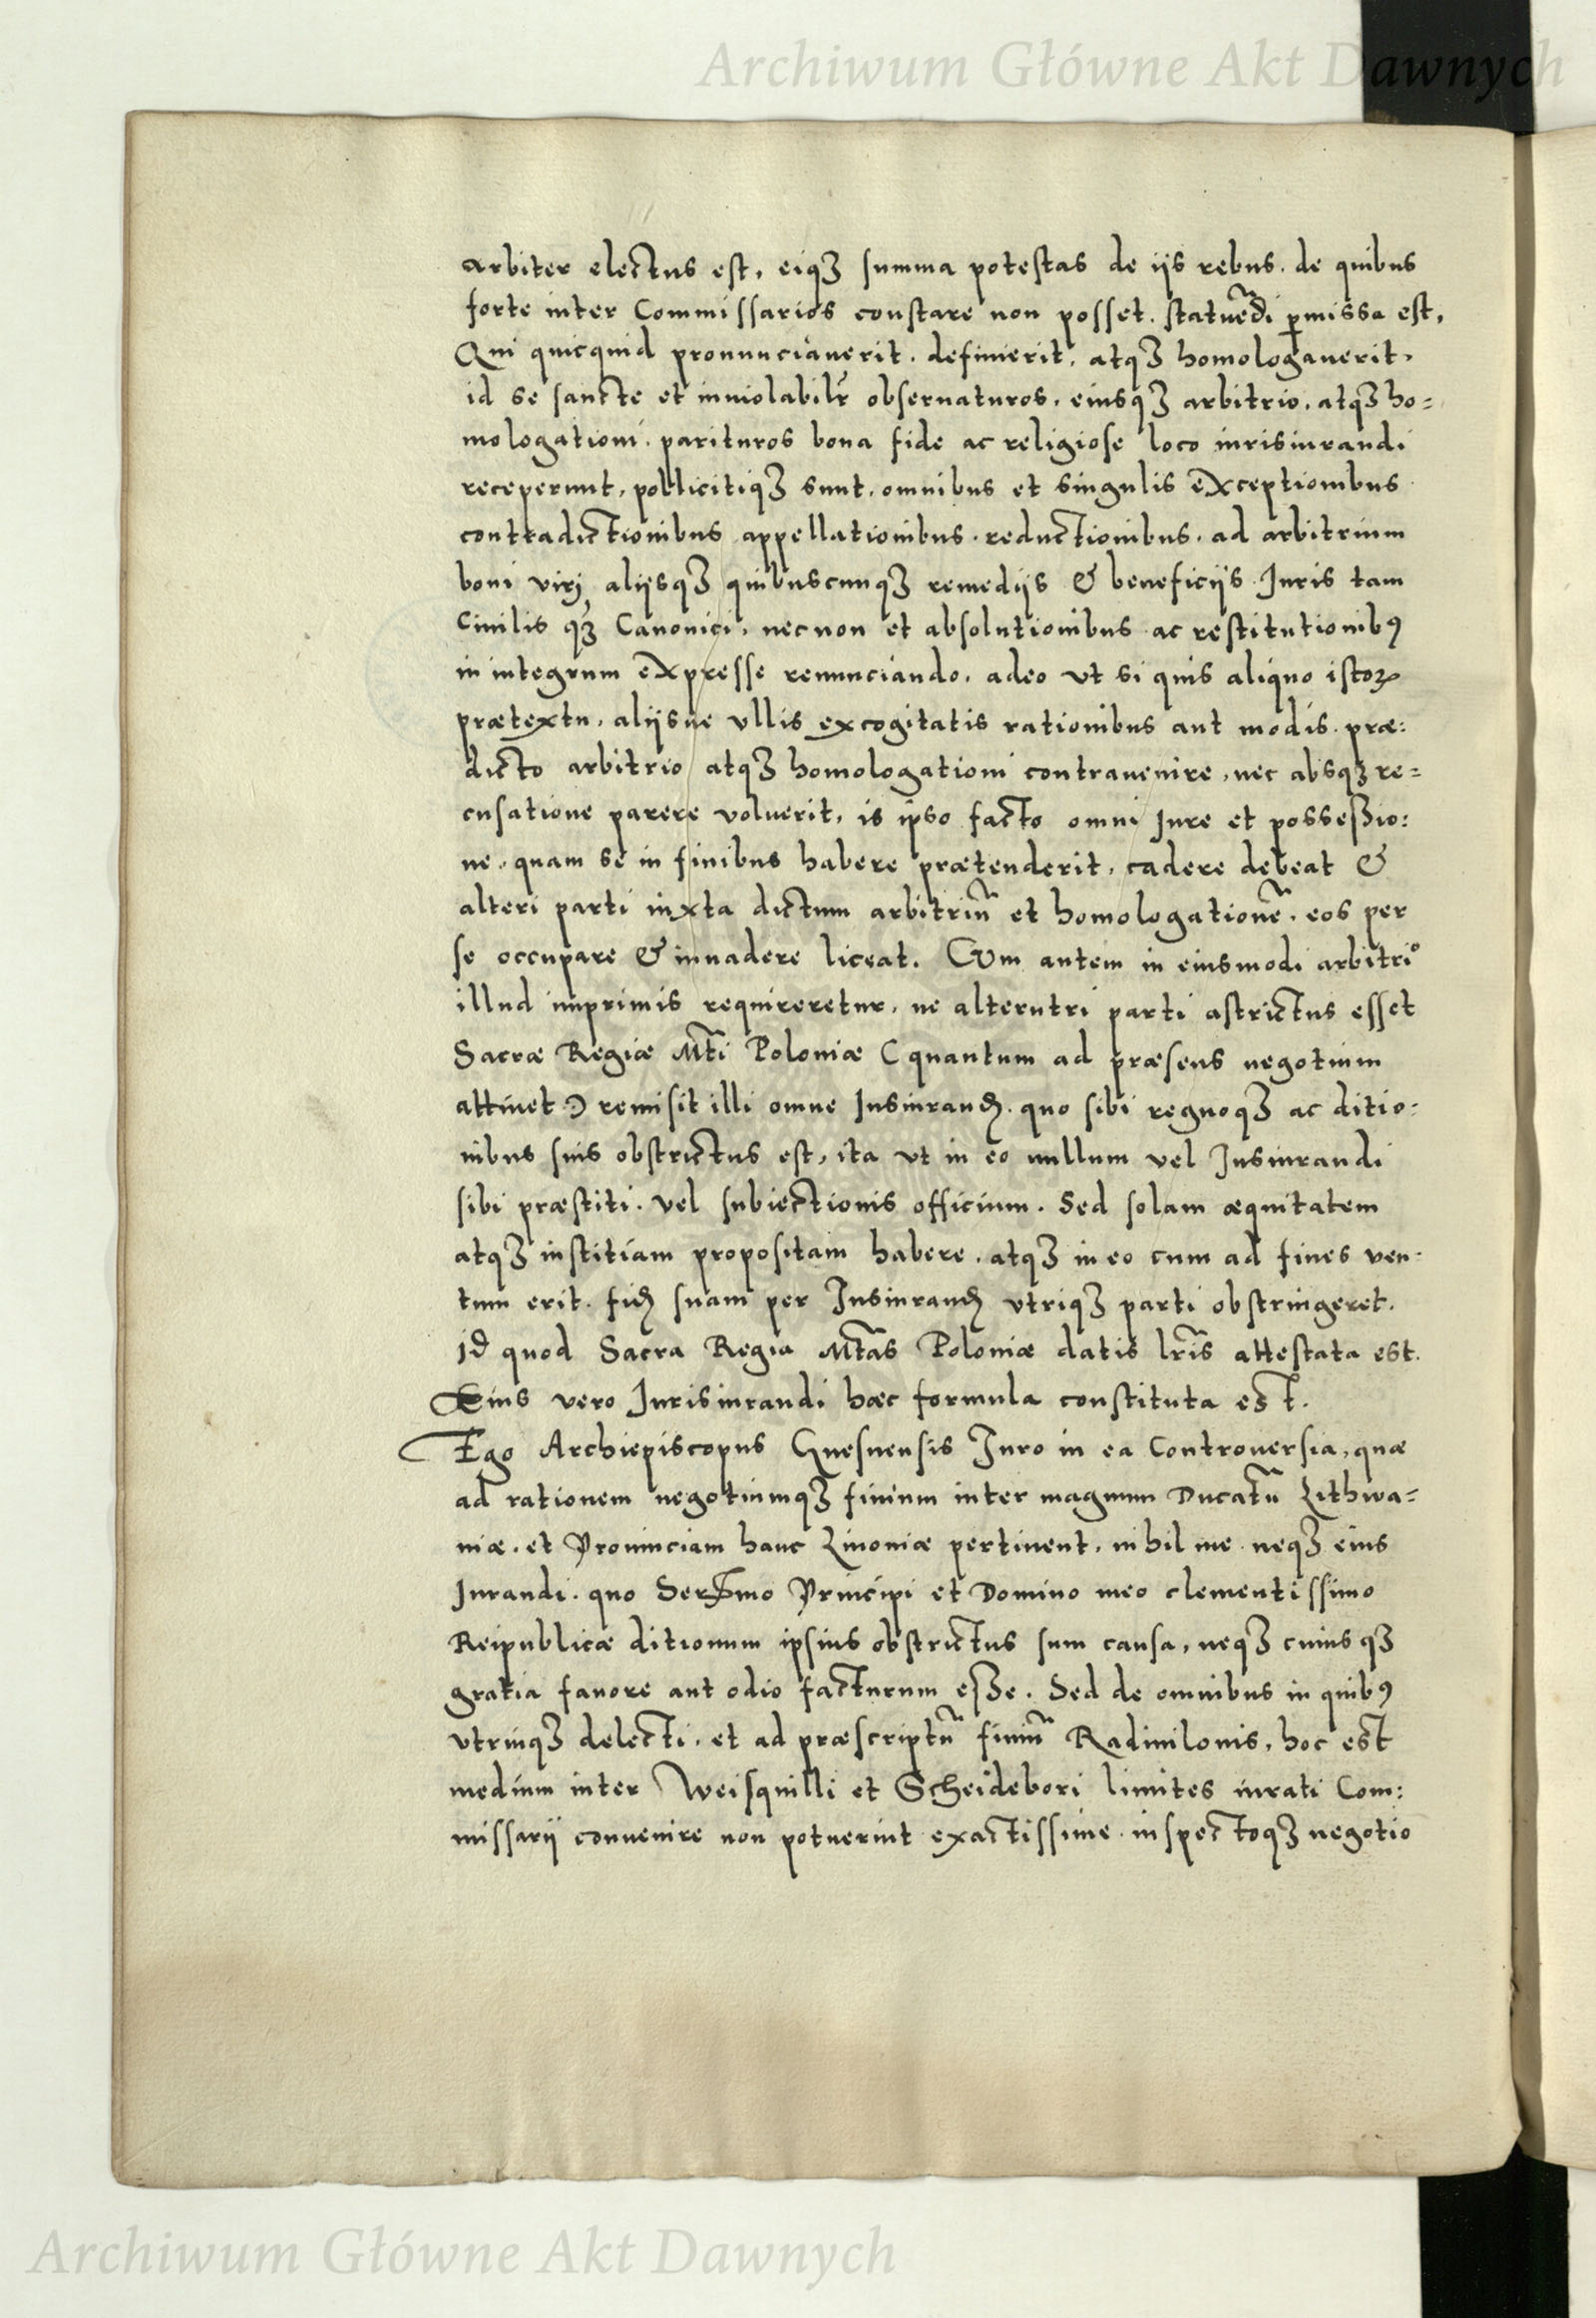 Archiwum Główne Akt Dawnych
arbiter electus est, eiqꝫ summa potestas de ijs rebus. de quibus
forte inter Commissarios constare non posset. statuẽdi ꝑmissa est,
Qui quicquid pronunciauerit. definierit, atqꝫ homologauerit,
id se sancte et inuiolabilr̃ obseruaturos, eiusqꝫ arbitrio, atqꝫ ho=
mologationi. parituros bona fide ac religiose loco iurisiurandi
receperunt, pollicitiqꝫ sunt, omnibus et singulis exceptionibus
contradictionibus appellationibus. reductionibus. ad arbitrium
boni virj, aliisqꝫ quibuscunqꝫ remedijs & beneficijs Juris tam
Ciuilis qꝫ Canonici, necnon et absolutionibus ac restitutionibꝰ
in integrum expresse renunciando, adeo vt si quis aliquo istoꝝ
prætextu, alijsue vllis excogitatis rationibus aut modis. præ:
dicto arbitrio atqꝫ homologationi contrauenire, nec absqꝫ re=
cusatione parere voluerit, is ipso facto omni Jure et possessio:
ne, quam se in finibus habere prætenderit, cadere debeat &
alteri parti iuxta dictum arbitriũ et homologationẽ, eos per
se occupare & inuadere liceat. Cum autem in eiusmodi arbitrio
illud imprimis requireretur, ne alterutri parti astrictus esset
Sacræ Regiæ Mti Poloniæ (quantum ad præsens negotium
attinet) remisit illi omne Jusiurandꝫ. quo sibi regnoqꝫ ac ditio:
nibus suis obstrictus est, ita vt in eo nullum vel Jusiurandi
sibi præstiti. vel subiectionis officium. Sed solam æquitatem
atqꝫ iustitiam propositam habere. atqꝫ in eo cum ad fines ven-
tum erit. fidꝫ suam per Jusiurandꝫ vtriqꝫ parti obstringeret.
Jd quod Sacra Regia Mtãs Poloniæ datis lrĩs attestata est.
Eius vero Jurisiurandi hæc formula constituta est.
Ego Archiepiscopus Gnesnensis Juro in ea Controuersia, quæ
ad rationem negotiumqꝫ finium inter magnum Ducatũ Lithwa=
niæ. et Prouinciam hanc Liuoniæ pertinent, nihil me neqꝫ eius
Jurandi. quo Serẽmo Principi et Domino meo clementissimo
Reipublicæ ditionum ipsius obstrictus sum causa, neqꝫ cuius qꝫ
gratia fauore aut odio facturum esse. Sed de omnibus in quibꝰ
vtrinqꝫ delecti, et ad præscriptũ finiũ Radiuilonis, hoc est
medium inter Weisquilli et Scheidebori limites iurati Com:
missarij conuenire non potuerint exactissime inspectoqꝫ negotio
Archiwum Główne Akt Dawnych